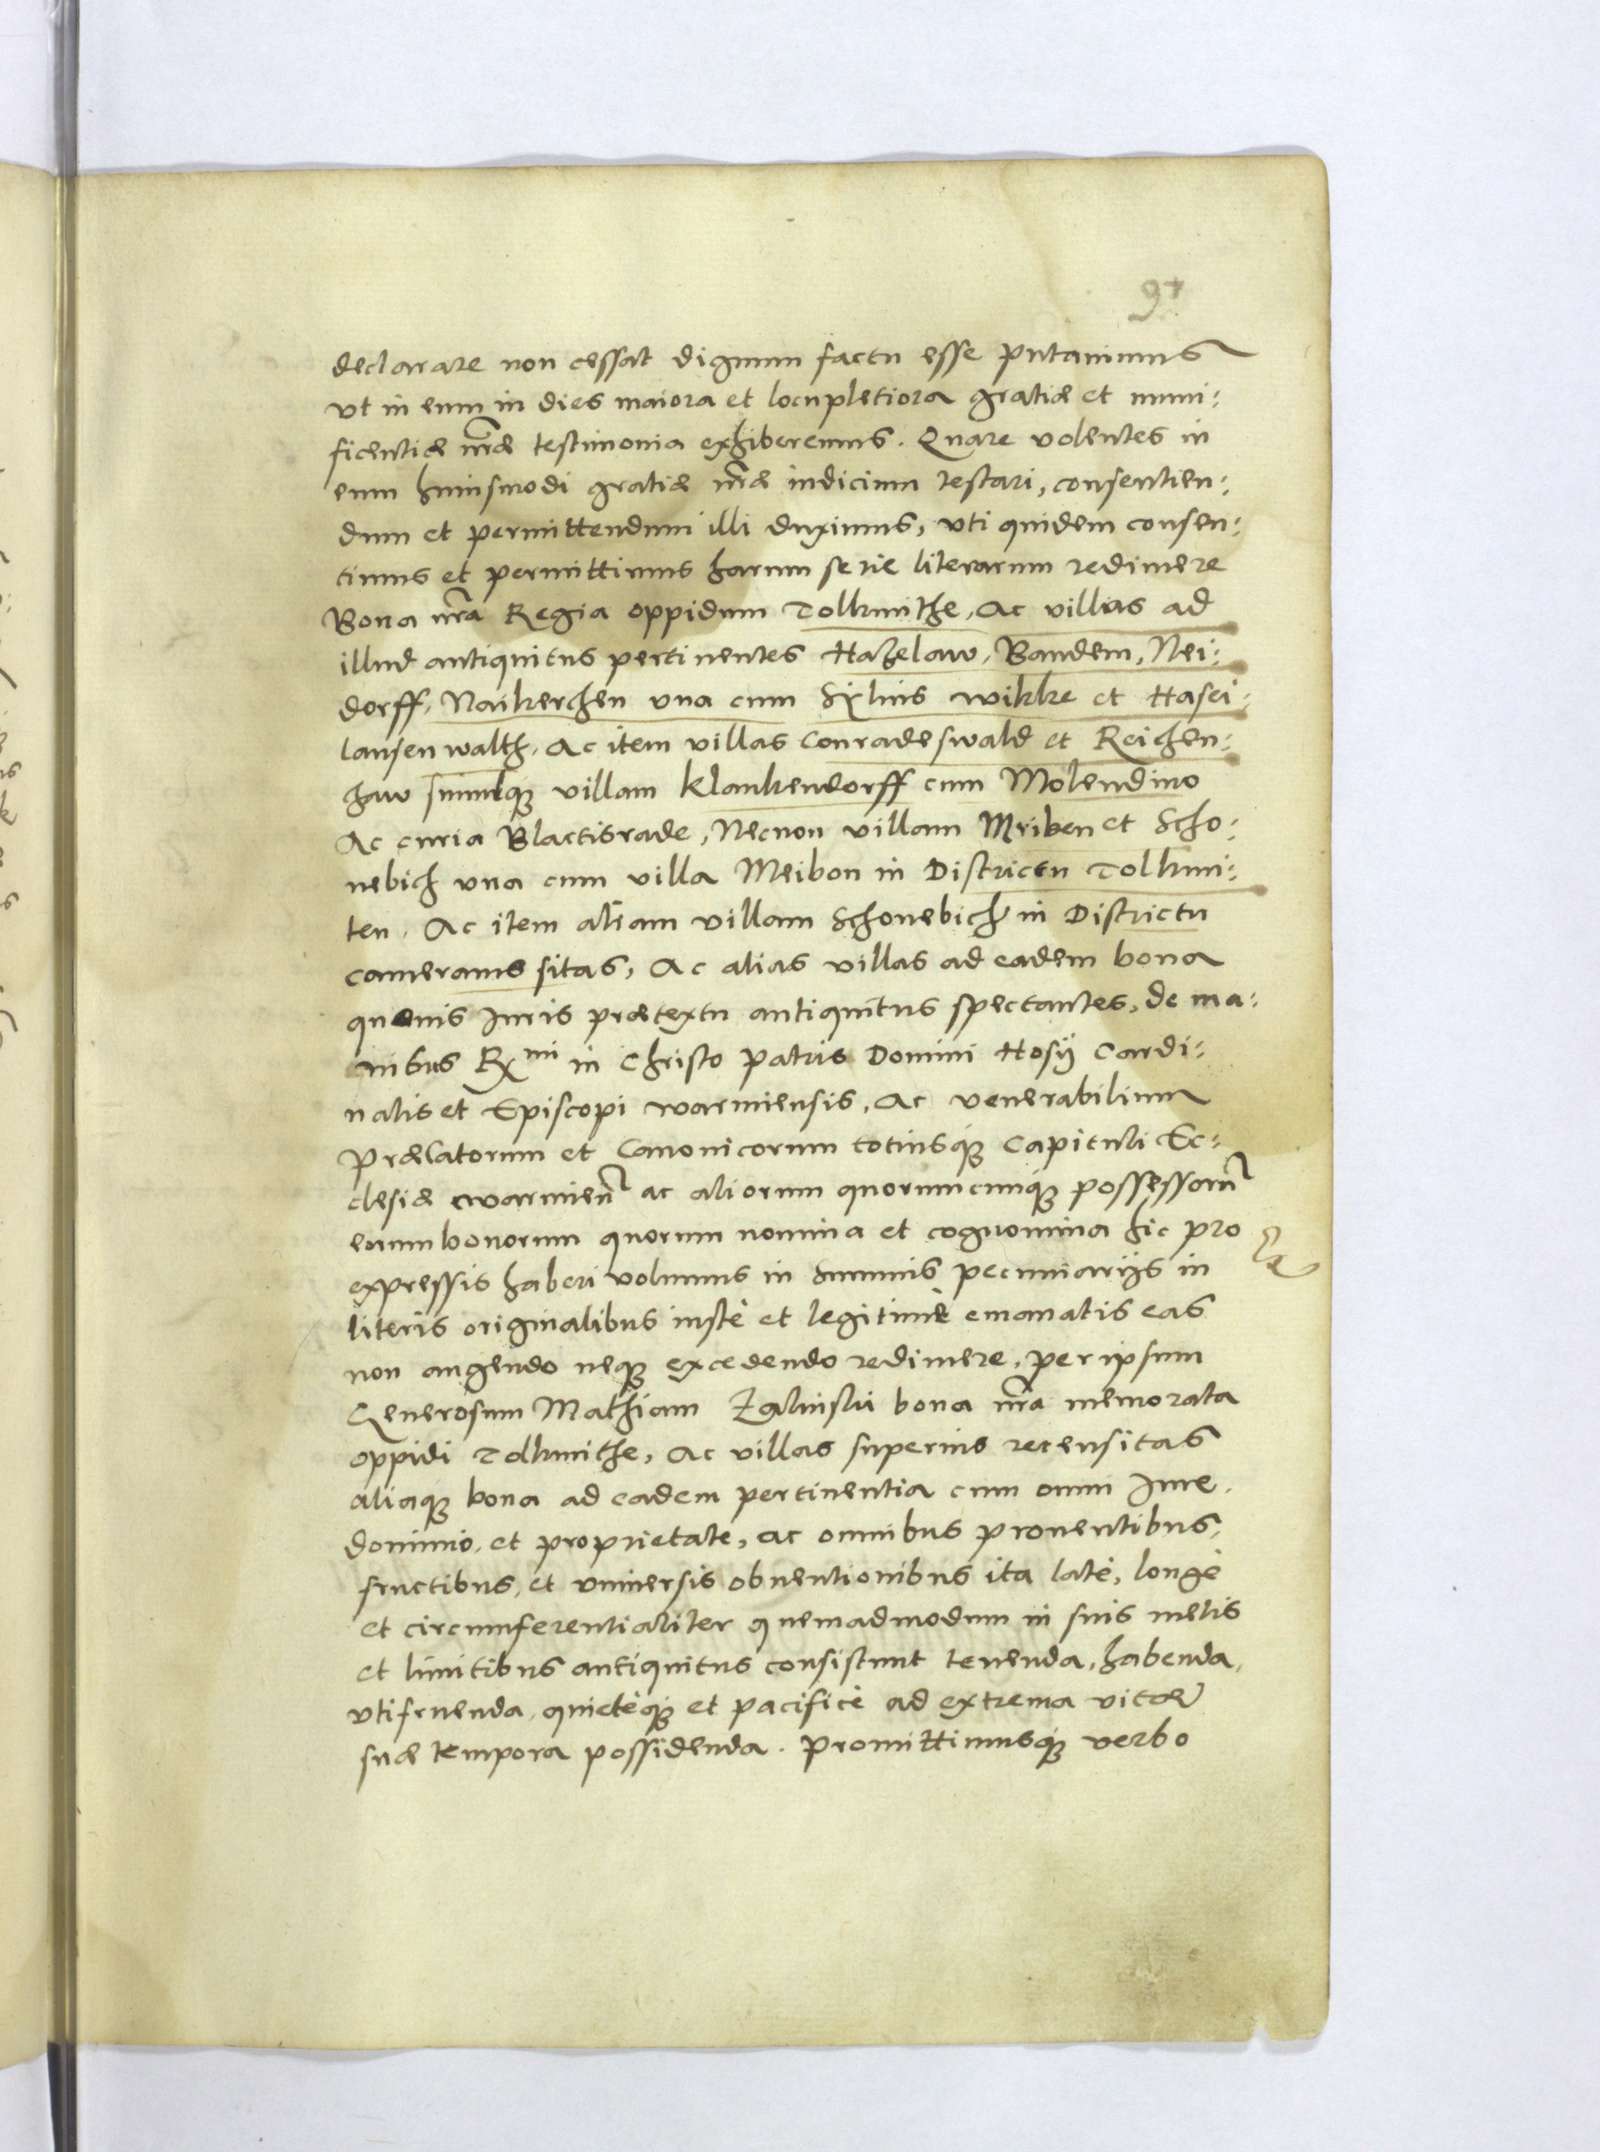 declarare non cessat dignum factu esse putauimus
vt in eum in dies maiora et locupletiora gratiæ et muni:
ficentiæ nræ testimonia exhiberemus. Quare volentes in
eum huiusmodi gratiæ nræ indicium testari, consentien:
dum et permittendum illi duximus, vti quidem consen:
timus et permittimus harum serie literarum redimere
Bona nra Regia oppidum Tolkmithe, Ac villas ad
illud antiquitus pertinentes Hazelaw, Baudem, Nei:
dorff, Naikerchen vna cum Sÿluis wikke et Hasei:
lausen walth, Ac item villas Conradeswald et Reichen:
haw simulque villam Klankendorff cum Molendino
Ac curia Blactisrade, Necnon villam Mriben et Scho:
nebich vna cum villa Meibon in Districtu Tolkmi:
ten. Ac item aliam villam Schonebich in Districtu
camerams sitas, Ac alias villas ad eadem bona
quouis Iuris prætextu antiquitus spectantes, de ma:
nibus Rmi in Christo patris Domini Hosÿ Cardi:
nalis et Episcopi warmiensis, Ac venerabilium
Prælatorum et Canonicorum totiusque Capituli Ec:
clesiæ warmien ac aliorum quorumcunque possessorum
eorum bonorum quorum nomina et cognomina hic pro
expressis haberi volumus in summis pecuniarijs in
literis originalibus iustè et legitimè emanatis eas
non augendo neque excedendo redimere, per ipsum
Generosum Mathiam Zalinski bona nra memorata
oppidi Tolkmithe, Ac villas superius recensitas
aliaque bona ad eadem pertinentia cum omni Iure,
dominio, et proprietate, ac omnibus prouentibus,
fructibus, et vniuersis obuentionibus ita latè, longè
et circumferentialiter quemadmodum in suis metis
et limitibus antiquitus consistunt tenenda, habenda,
vtifruenda, quietèque et pacificè ad extrema vitæ
suæ tempora possidenda. Promittimusque verbo